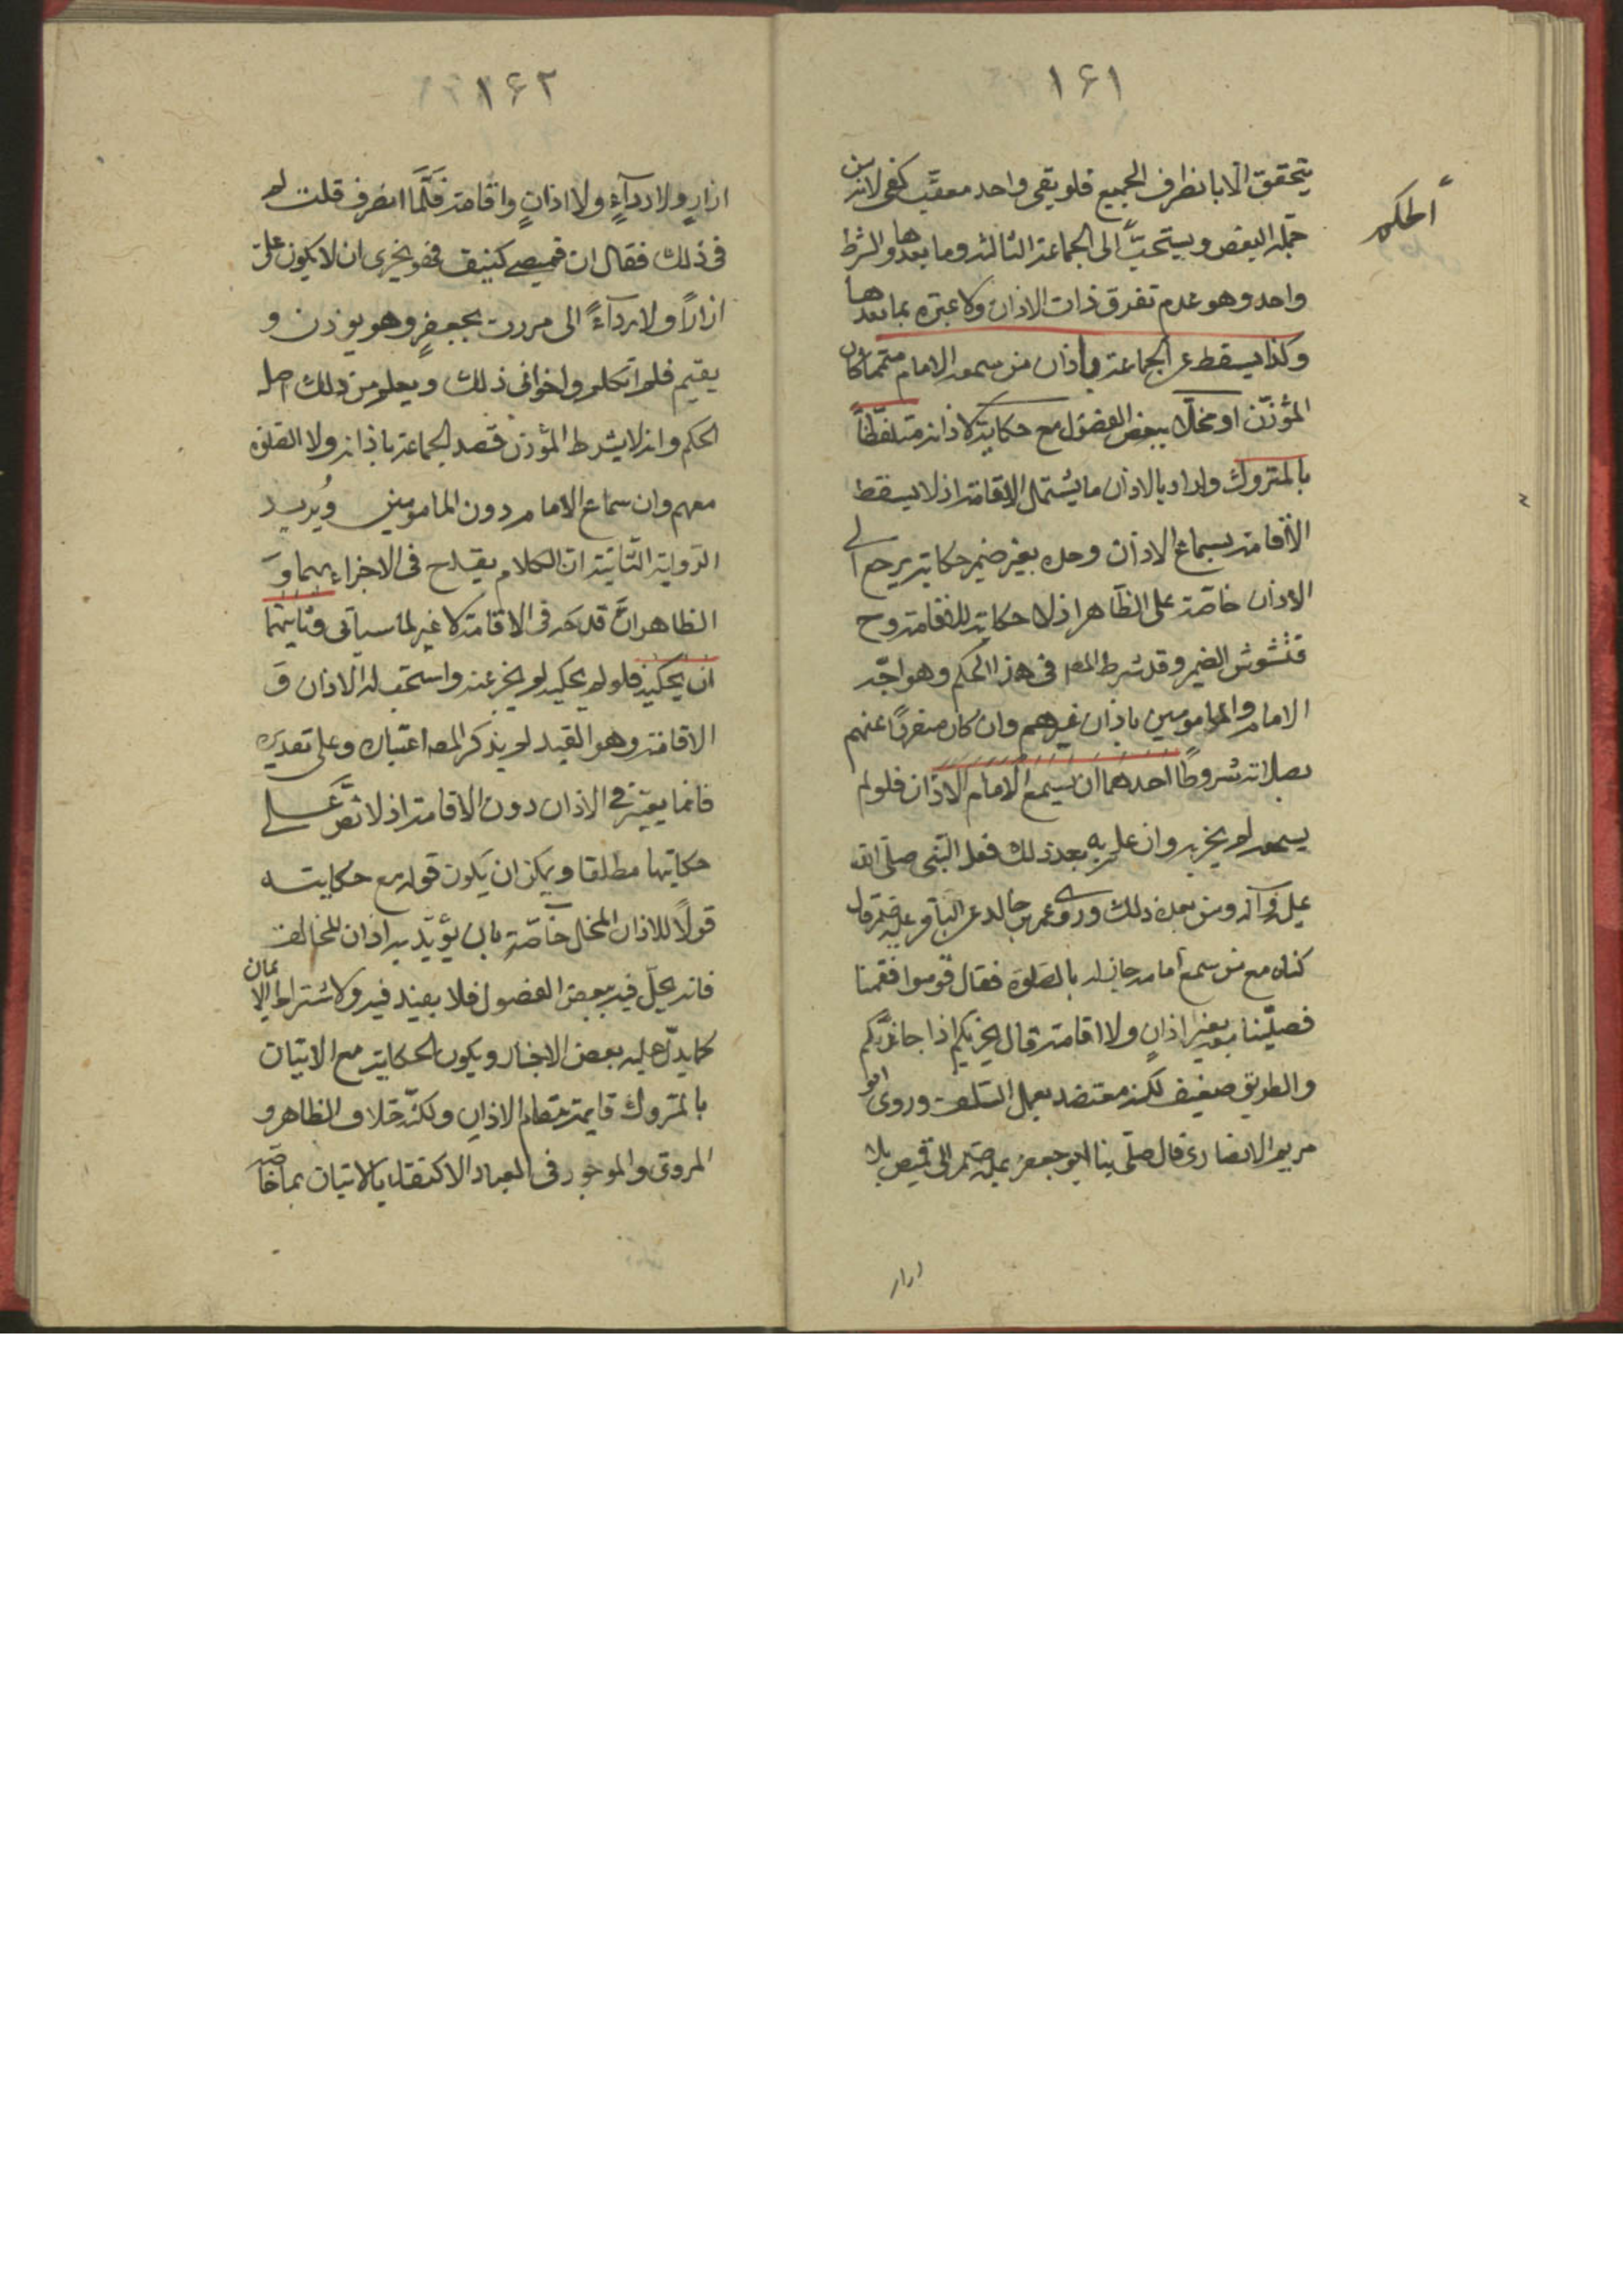 ١٦١
الحكم
يتحقق الا بانطراف الجميع فلو بقى واحد معقب كفى لانه من
جملة البعض ويستحب الى الجماعة الثالثة وما بعدها والشرط
واحد وهو عدم تفرق ذات الاذان ولا عبرة بما بعدها
وكذا يسقط عن الجماعة باذان من سمعه الامام متمما كان
المؤذن او مخلا ببعض الفصول مع حكايته لاذانه متلفظا
بالمتروك واراد بالاذان ما يشتمل الاقامة اذ لا يسقط
الاقامة بسماع الاذان وحده بغير ضمير حكايته يرجع الى
الاذان خاصة على الظاهر اذ لا حكاية للاقامة وح
فتشوش الضمير وقد شرط المصر فى هذا الحكم وهو اجتزاء
الامام والمامومين باذان غيرهم وان كان منفردا عنهم
بصلاته شروطا احدها ان يسمع الامام الاذان فلو لم
يسمعه لم يجز به وان علم به بعد ذلك فعله النبى صلى الله
عليه وآله ومن بعده ذلك وروى عمر بن خالد عن الباقر عليه قال
كنا مع من سمع اقامة جار له بالصلوة فقال قوموا فقمنا
فصلينا معه بغير اذان ولا اقامة قال يجزيكم اذا جاركم
والطريق ضعيف لكنه معتضد بعمل السلف وروى ابو
مريم الانصارى قال صلى بنا ابو جعفر عليه فى قميص بلا
ازار
١٦٢
ازار ولا رداء ولا اذان واقامة فلما انصرف قلت له
فى ذلك فقال ان قميصى كثيف فهو يجزى ان لا يكون على
ازارا ولا رداء انى مررت بجعفر وهو يوذن و
يقيم فلم اتكلم واجزانى ذلك ويعلم من ذلك اصل
الحكم وانه لا يشترط المؤذن قصد الجماعة باذانه ولا الصلوة
معهم وان سماع الامام دون المامومين ويزيد
الرواية الثانية ان الكلام يقدح فى الاجزاء بهما و
الظاهر ان قدحه فى الاقامة لا غير لما سيأتى وثانيها
ان يحكيه فلو لم يحكيه لم يجز عنه واستحب له الاذان و
الاقامة وهو القيد لم يذكر المصر اعتباره وعلى تقديره
فانما يعتبر فى الاذان دون الاقامة اذ لا نص على
حكايتها مطلقا ويمكن ان يكون قوله مع حكايته
قولا للاذان المخل خاصة بان يؤيد به اذان المخالف
فانه يخل فيه ببعض الفصول فلا يعتد فيه ولاشتراط الايمان
كما يدل عليه بعض الاخبار ويكون الحكاية مع الاتيان
بالمتروك قايمة مقام الاذان ولكنه خلاف الظاهر و
المروى والموجود فى العبارة الاكتفاء بالاتيان بما خاصة